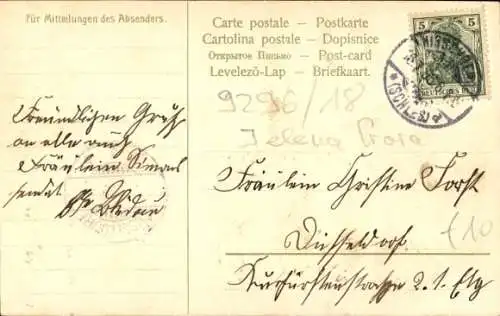 Für Mittellungen des Absenders.
Carte postale – Postkarte
Cartolina postale – Dopisnice
Открытое Письмо – Post-card
Levelező-Lap – Briefkaart.
5 5
DEUTSCHES REICH
9296/18
Jelena
£10
Freundlichen Gruß
an alle auch
Fräulein Simons
sendet
Fräulein Christine Forst
Düsseldorf
Kurfürstenstrasse 2. I. Etg